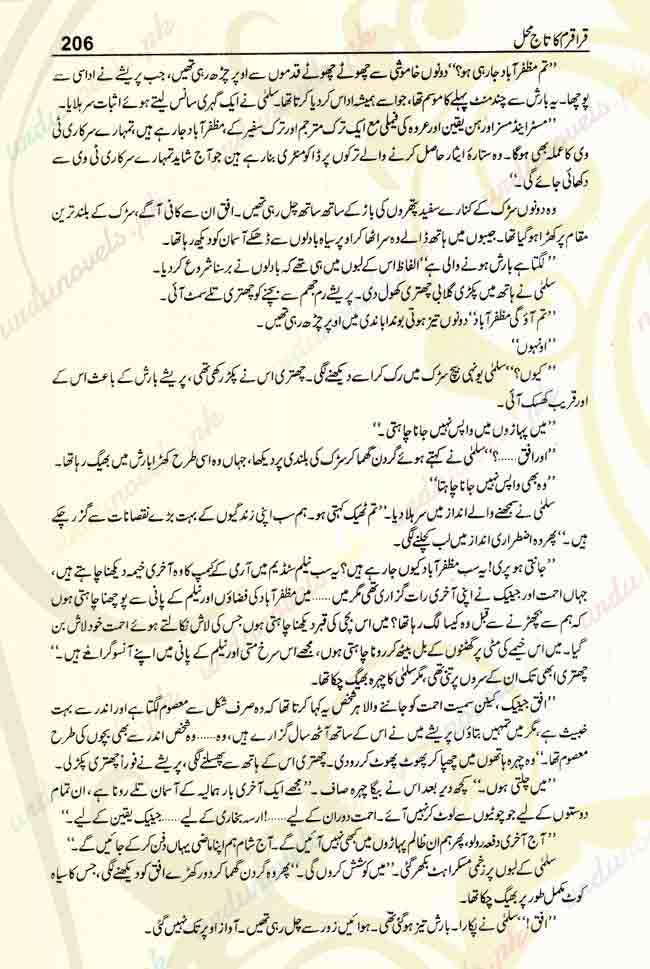 قراقرم کا تاج محل 206
’’تم مظفر آباد جا رہی ہو؟‘‘ دونوں خاموشی سے چھوٹے چھوٹے قدموں سے اوپر چڑھ رہی تھیں، جب پریشے نے اداسی سے
پوچھا۔ یہ بارش سے چند منٹ پہلے کا موسم تھا، جو اسے ہمیشہ اداس کر دیا کرتا تھا۔ سلمٰی نے ایک گہری سانس لیتے ہوئے اثبات سر ہلایا۔
’’مسٹر اینڈ مسز اور ہن یقین اور عروہ کی فیملی مع ایک ترک مترجم اور ترک سفیر کے، مظفر آباد جا رہے ہیں، تمہارے سرکاری ٹی
وی کا عملہ بھی ہوگا۔ وہ ستارۂ ایثار حاصل کرنے والے ترکوں پر ڈاکومنٹری بنا رہے ہین جو آج شاید تمہارے سرکاری ٹی وی سے
دکھائی جائے گی۔‘‘
وہ دونوں سڑک کے کنارے سفید پتھروں کی باڑ کے ساتھ ساتھ چل رہی تھیں۔ افق ان سے کافی آگے، سڑک کے بلند ترین
مقام پر کھڑا ہو گیا تھا۔ جیبوں میں ہاتھ ڈالے وہ سر اٹھا کر اوپر سیاہ بادلوں سے ڈھکے آسمان کو دیکھ رہا تھا۔
’’لگتا ہے بارش ہونے والی ہے‘‘ الفاظ اس کے لبوں میں ہی تھے کہ بادلوں نے برسنا شروع کر دیا۔
سلمٰی نے ہاتھ میں پکڑی گلابی چھتری کھول دی۔ پریشے رم جھم سے بچنے کو چھتری تلے سمٹ آئی۔
’’تم آؤ گی مظفر آباد‘‘ دونوں تیز ہوتی بوندا باندی میں اوپر چڑھ رہی تھیں۔
’’اونہوں‘‘
’’کیوں؟‘‘ سلمٰی یونہی بیچ سڑک میں رک کر اسے دیکھنے لگی۔ چھتری اس نے پکڑ رکھی تھی، پریشے بارش کے باعث اس کے
اور قریب کھسک آئی۔
’’میں پہاڑوں میں واپس نہیں جانا چاہتی۔‘‘
’’اور افق......؟‘‘ سلمٰی نے کہتے ہوئے گردن گھما کر سڑک کی بلندی پر دیکھا، جہاں وہ اسی طرح کھڑا بارش میں بھیگ رہا تھا۔
’’وہ بھی واپس نہیں جانا چاہتا‘‘
سلمٰی نے سمجھنے والے انداز میں سر ہلا دیا۔ ’’تم ٹھیک کہتی ہو۔ ہم سب اپنی زندگیوں کے بہت بڑے نقصانات سے گزر چکے
ہیں۔‘‘ پھر وہ اضطراری انداز میں لب کچلنے لگی۔
’’جانتی ہو پری! یہ سب مظفر آباد کیوں جا رہے ہیں؟ یہ سب نیلم سٹڈیم میں آرمی کے کیمپ کا وہ آخری خیمہ دیکھنا چاہتے ہیں،
جہاں احمت اور جینیک نے اپنی آخری رات گزاری تھی مگر میں...... میں مظفر آباد کی فضاؤں اور نیلم کے پانی سے پوچھنا چاہتی ہوں
کہ ہم سے بچھڑنے سے قبل وہ کیسا لگ رہا تھا؟ میں اس بچی کی قبر دیکھنا چاہتی ہوں جس کی لاش نکالتے ہوئے احمت خود لاش بن
گیا۔ میں اس خیمے کی مٹی پر گھٹنوں کے بل بیٹھ کر رونا چاہتی ہوں، مجھے اس سرخ متی اور نیلم کے پانی میں اپنے آنسو گرانے ہیں۔‘‘
چھتری ابھی تک ان کے سروں پر تنی تھی، مگر سلمٰی کا چہرہ بھیگ چکا تھا۔
’’افق، جینیک، کینن سمیت احمت کو جاننے والا ہر شخص یہ کہا کرتا تھا کہ وہ صرف شکل سے معصوم لگتا ہے اور اندر سے بہت
خبیث ہے، مگر میں تمہیں بتاؤں پریشے میں نے اس کے ساتھ آٹھ سال گزارے ہیں، وہ...... وہ شخص اندر سے بھی بچوں کی طرح
معصوم تھا۔‘‘ وہ چہرہ ہاتھوں میں چھپا کر پھوٹ پھوٹ کر رودی۔ چھتری اس کے ہاتھ سے پھسلنے لگی، پریشے نے فوراً چھتری پکڑ لی۔
’’میں چلتی ہوں۔‘‘ کچھ دیر بعد اس نے بیگا چہرہ صاف۔ ’’مجھے ایک آخری بار ہمالیہ کے آسمان تلے رونا ہے، ان تمام
دوستوں کے لیے جو چوٹیوں سے لوٹ کر نہیں آئے۔ احمت دوران کے لیے......! ارسہ بخاری کے لیے...... جینیک یقین کے لیے۔‘‘
’’آج آخری دفعہ رو لو، پھر ہم ان ظالم پہاڑوں میں کبھی نہیں آئیں گے۔ آج شام ہم اپنا ماضی یہاں دفن کر کے جائیں گے۔‘‘
سلمٰی کے لبوں پر زخمی مسکراہٹ بکھر گئی۔ ’’میں کوشش کروں گی۔‘‘ پھر وہ گردن گھما کر دور کھڑے افق کو دیکھنے لگی، جس کا سیاہ
کوٹ مکمل طور پر بھیگ چکا تھا۔
’’افق!‘‘ سلمٰی نے پکارا۔ بارش تیز ہو گئی تھی۔ ہوائیں زور سے چل رہی تھیں۔ آواز اوپر تک نہیں گئی۔
urdunovels.pk